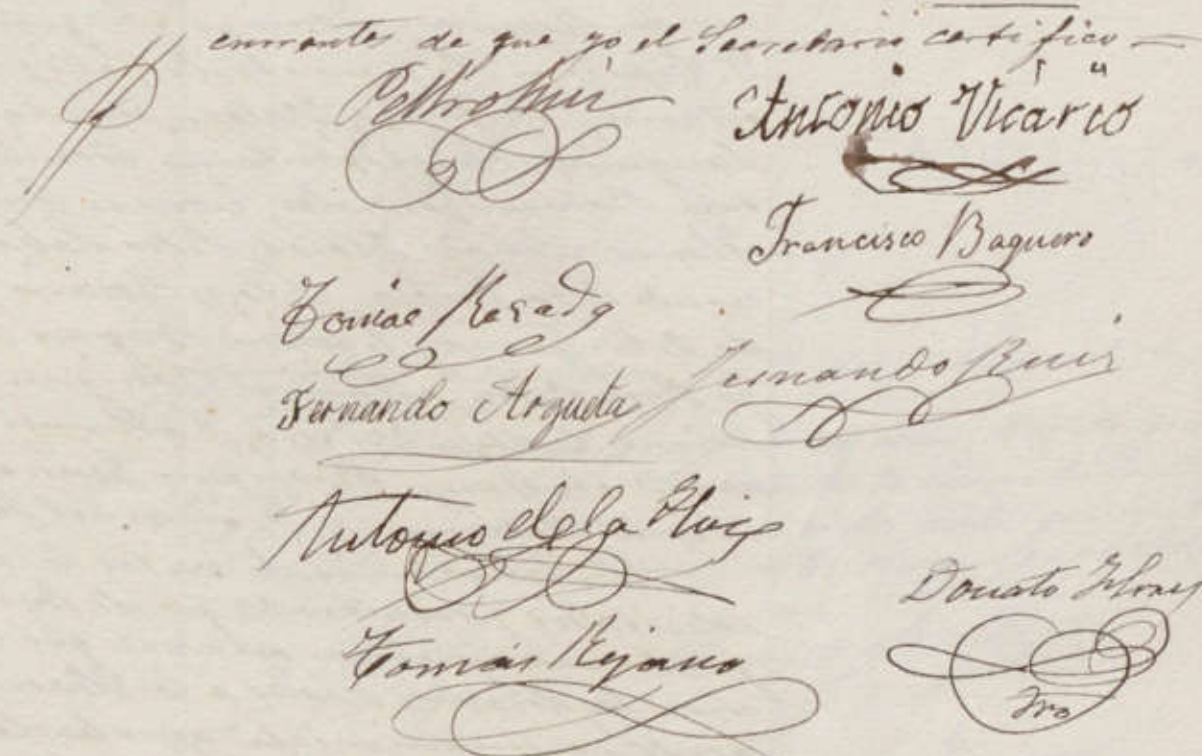 currentes de que yo el Secretario certifico —
Antonio Vicario
Francisco Baquero
Tomás Rosado
Fernando Argueta Fernando Ruiz
Antonio de la
Donato Flores
Tomás Rejano
Srio